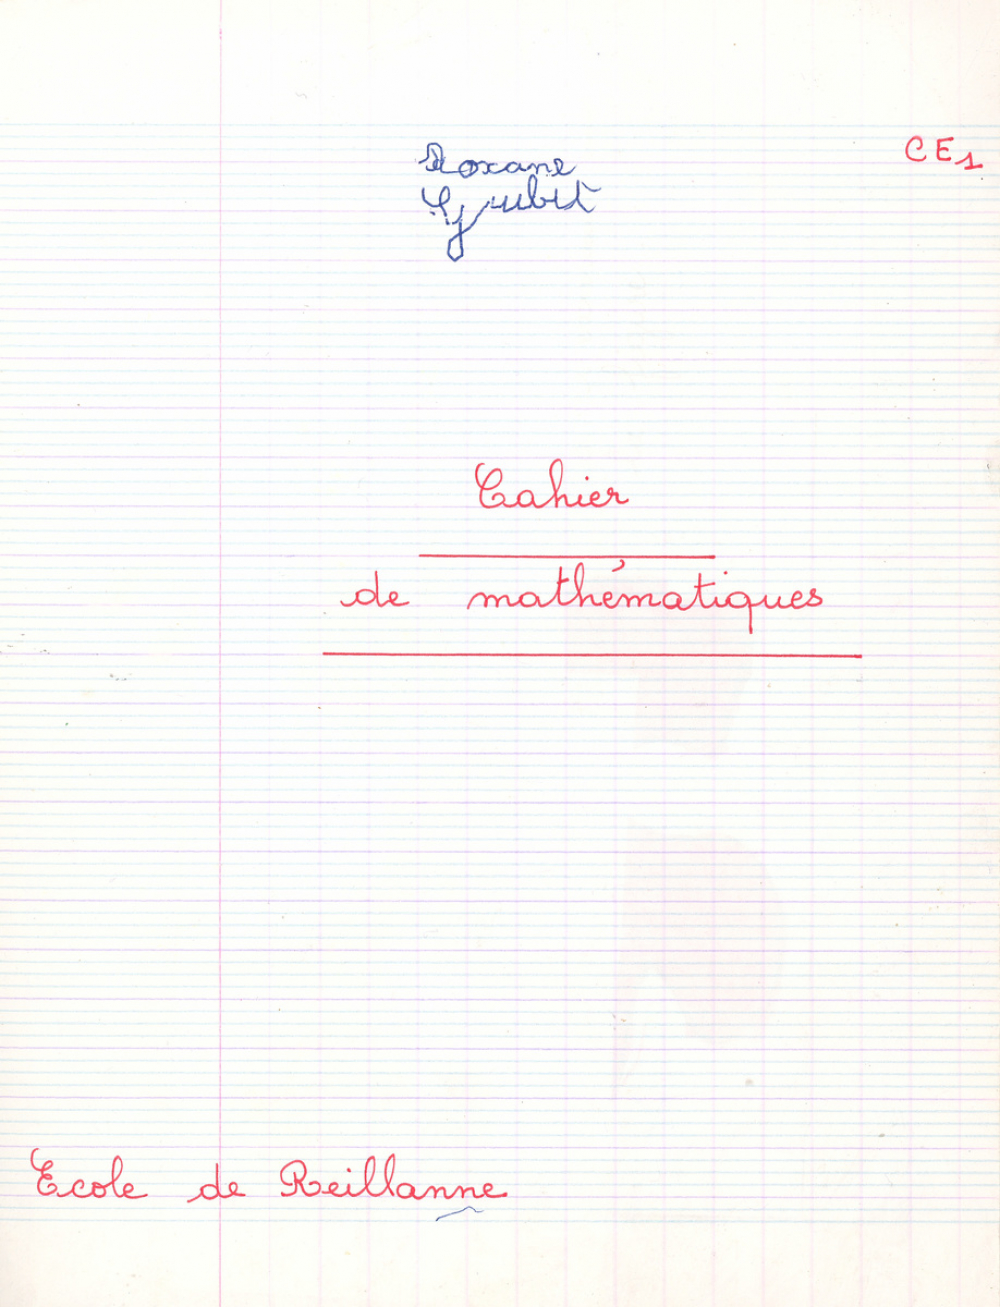 CE1
Roxane
Cahier
de mathématiques
Ecole de Reillanne